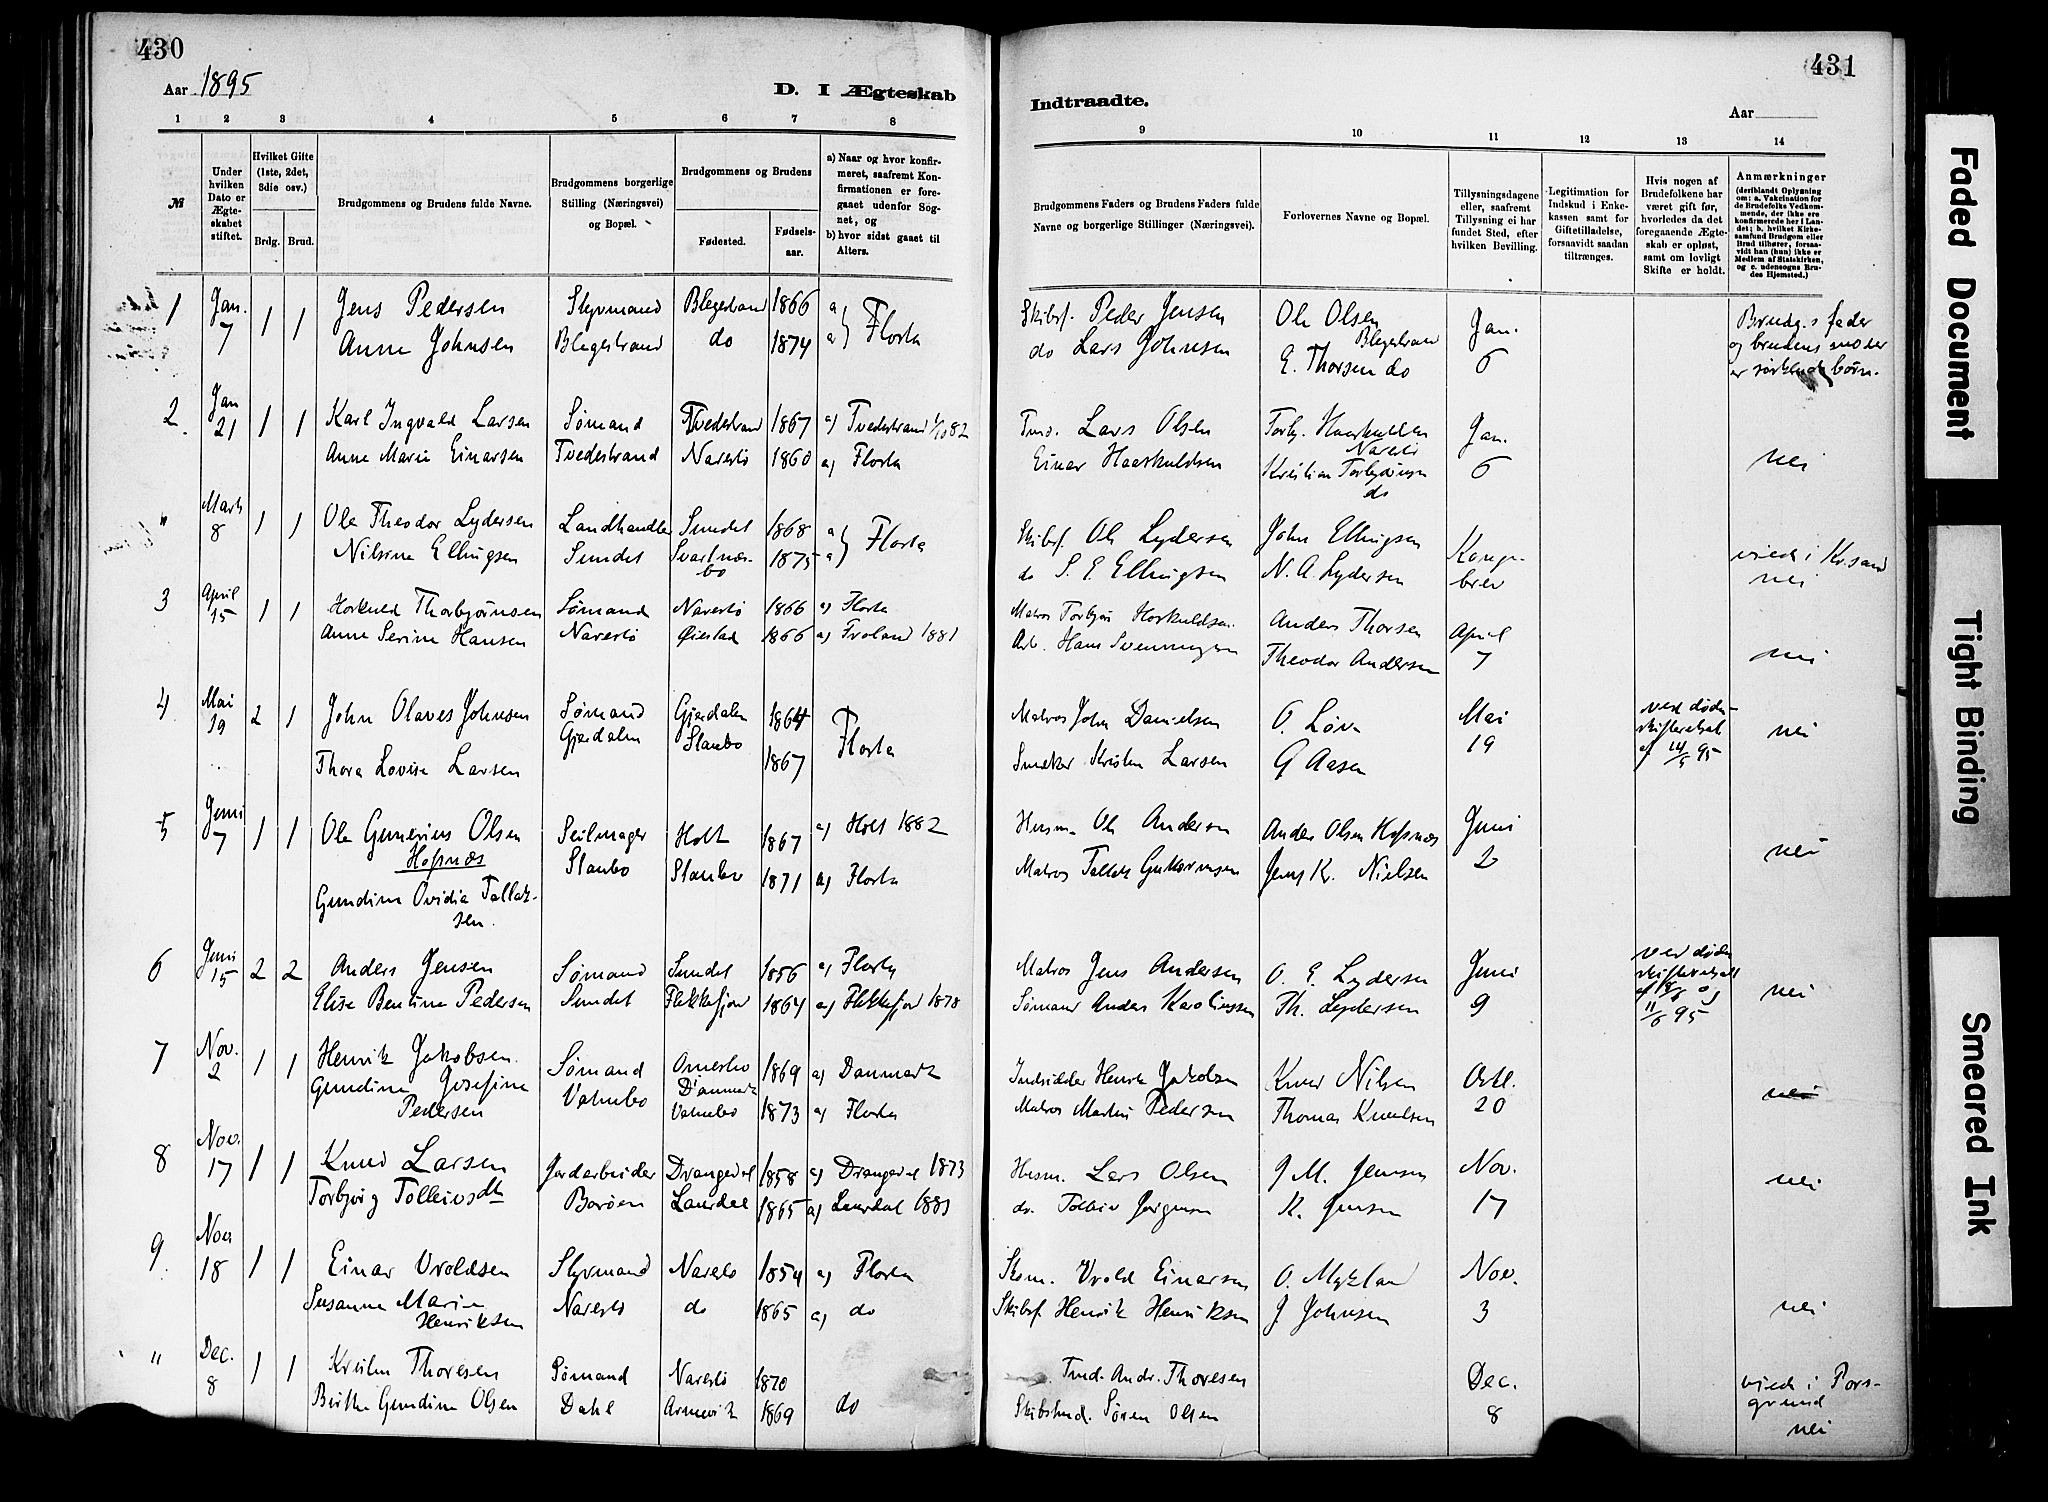 430
Aar 1895
D. I Ægteskab
1 2 3 4 5 6 7 8
№
Under hvilken Dato er Ægteskabet stiftet.
Hvilket Gifte (1ste, 2det, 3die osv.)
Brdg. Brud.
Brudgommens og Brudens fulde Navne.
Brudgommens borgerlige Stilling (Næringsvei) og Bopæl.
Brudgommens og Brudens
Fødested. Fødselsaar.
a) Naar og hvor konfirmeret, saafremt Konfirmationen er foregaaet udenfor Sognet, og
b) hvor sidst gaaet til Alters.
1 Jan. 7 1 1 Jens Pedersen Styrmand Blegestrand 1866 a)
Anne Johnsen Blegestrand do 1874 a) Flosta
2. Jan 21 1 1 Karl Ingvald Larsen Sømand Tvedestrand 1867 a) Tvedestrand 1/10 82
Anne Marie Einarsen Tvedestrand Narestø 1860 a) Flosta
" Marts 8 1 1 Ole Theodor Lydersen Landhandler Sundet 1868 a)
Nilsine Ellingsen Sundet Svartnæsbo 1875 a) Flosta
3 April 15 1 1 Horkuld Thorbjørnsen Sømand Narestø 1866 a) Flosta
Anne Serine Hansen Narestø Øiestad 1866 a) Froland 1881
4 Mai 19 2 1 John Olaves Johnsen Sømand Gjerdalen 1864
Gjerdalen Staubo Flosta
Thora Lovise Larsen 1867
5 Juni 7 1 1 Ole Gunerius Olsen Seilmager Holt 1867 a) Holt 1882
Hopnæs Staubo Staubo 1871 a) Flosta
Gundine Ovidia Tallaksen.
6 Juni 15 2 2 Anders Jensen Sømand Sundet 1856 a) Flosta
Elise Bentine Pedersen Sundet Flekkefjord 1864 a) Flekkefjord 1878
7 Nov. 2 1 1 Henrik Jakobsen. Sømand Danmark 1869 a) Danmark
Gundine Josefine Pedersen Vatnebo Vatnebo 1873 a) Flosta
8 Nov. 17 1 1 Knud Larsen Jordarbeider Drangedal 1858 a) Drangedal 1873
Torbjørg Tolleivsdt Borøen Laurdal 1865 a) Laurdal 1881
9. Nov 18 1 1 Einar Uroldsen Styrmand Narestø 1854 a) Flosta
Susanne Marie Henriksen Narestø do 1865 a) do
" Dec. 8 1 1 Kristen Thoresen Sømand Narestø 1870
Birthe Gundine Olsen Dahl Arnevik 1869 do
431
Indtraadte.
Aar
9 10 11 12 13 14
Brudgommens Faders og Brudens Faders fulde Navne og borgerlige Stillinger (Næringsvei).
Forlovernes Navne og Bopæl.
Tillysningsdagene eller, saafremt Tillysning ei har fundet Sted, efter hvilken Bevilling.
Legitimation for Indskud i Enkekassen samt for Giftetilladelse, forsaavidt saadan tiltrænges.
Hvis nogen af Brudefolkene har været gift før, hvorledes da det foregaaende Ægteskab er opløst, samt om lovligt Skifte er holdt.
Anmærkninger
(deriblandt Oplysning om: a. Vakcination for de Brudefolks Vedkommende, der ikke ere konfirmerede her i Landet; b. hvilket Kirkesamfund Brudgom eller Brud tilhører, forsaavidt han (hun) ikke er Medlem af Statskirken, og c. udensogns Brudes Hjemsted.)
Skibsf. Peder Jensen Ole Olsen Blegestrand Jan. 6 Brudg.s fader
do Lars Johnsen E. Thorsen do og brudens moder
er søskendebørn.
Tmd. Lars Olsen Torbj. Haarkullsen Narestø Jan. 6 nei
Einar Haarkuldsen Kristian Torbjørnsen do
Skibsf. Ole Lydersen John Ellingsen Kongebrev viede i Kr.sand
do S. E. Ellingsen N. A. Lydersen nei
Matros Torbjørn Horkuldsen. Anders Thorsen April 7 nei
Arb. Hans Svenningsen Theodor Andersen
Matros John Danielsen O. Løvn Mai 19 ved døden skifteattest af 14/5 95 nei
Snekker Kristen Larsen G Aasen
Husm. Ole Andersen Anders Olsen Hopnæs Juni 2 nei
Matros Tallak Guttormsen Jens Kr. Nielsen
Matros Jens Andersen O. E. Lydersen Juni 9 ved døden skifteattest af 18/6 og 11/6 95 nei
Sømand Anders Karoliussen Th. Lydersen
Indsidder Henrik Jakobsen Knud Nilsen Oct. 20 nei
Matros Martin Pedersen Thomas Knudsen
Husm. Lars Olsen J M. Jensen Nov. 17 nei
do. Tolleiv Jørgensen K. Jensen
Skom. Urold Einarsen O. Mykland Nov. 3 nei
Skibsf. Henrik Henriksen J Johnsen
Tmd. Andr. Thoresen Dec. 8 viede i Porsgrund
Skibstmd. Søren Olsen nei
Faded Document
Tight Binding
Smeared Ink